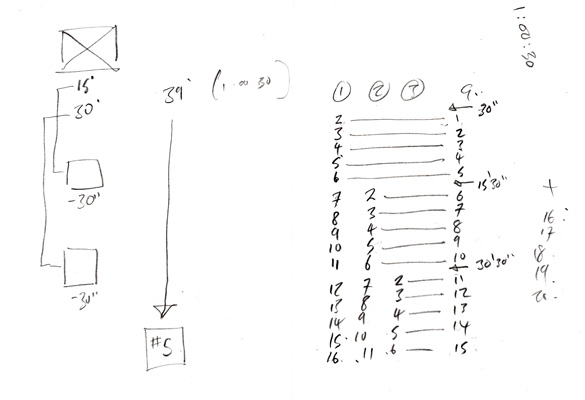 1:00:30
15'
30'
-30"
-30"
39' (1.00 30)
#5
① ② ③ 9..
30"
2 1
3 2
4 3
5 4
6 5
15'30"
7 2 6
8 3 7
9 4 8
10 5 9
11 6 10
30'30"
12 7 2 11
13 8 3 12
14 9 4 13
15. 10 5 14
16. .11 6 15
+
16
17
18
19